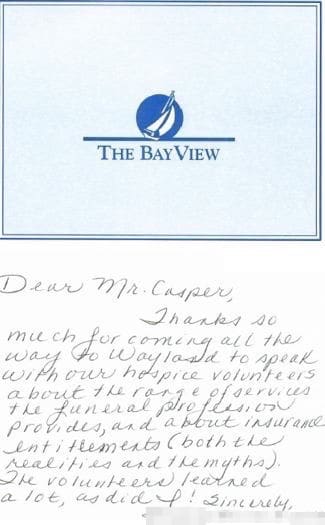 THE BAYVIEW
Dear Mr. Casper,
Thanks so
much for coming all the
way to Wayland to speak
with our hospice volunteers
about the range of services
the funeral profession
provides, and about insurance
entitlements (both the
realities and the myths).
The volunteers learned
a lot, as did I! Sincerely,